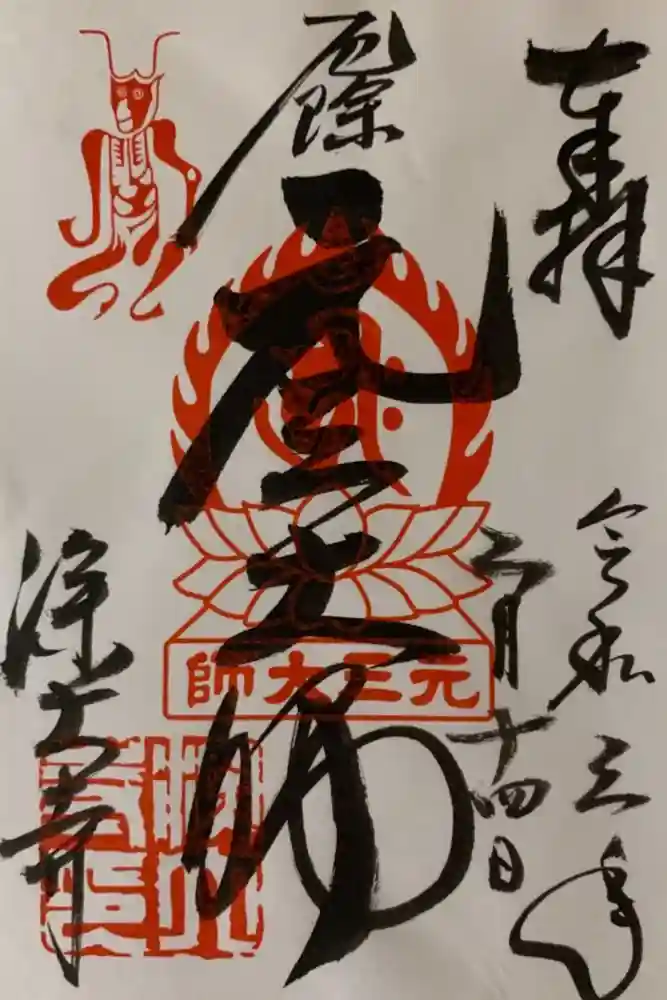 奉拝
令和三年
二月十四日
厄除
元三大師
元三大師
深大寺